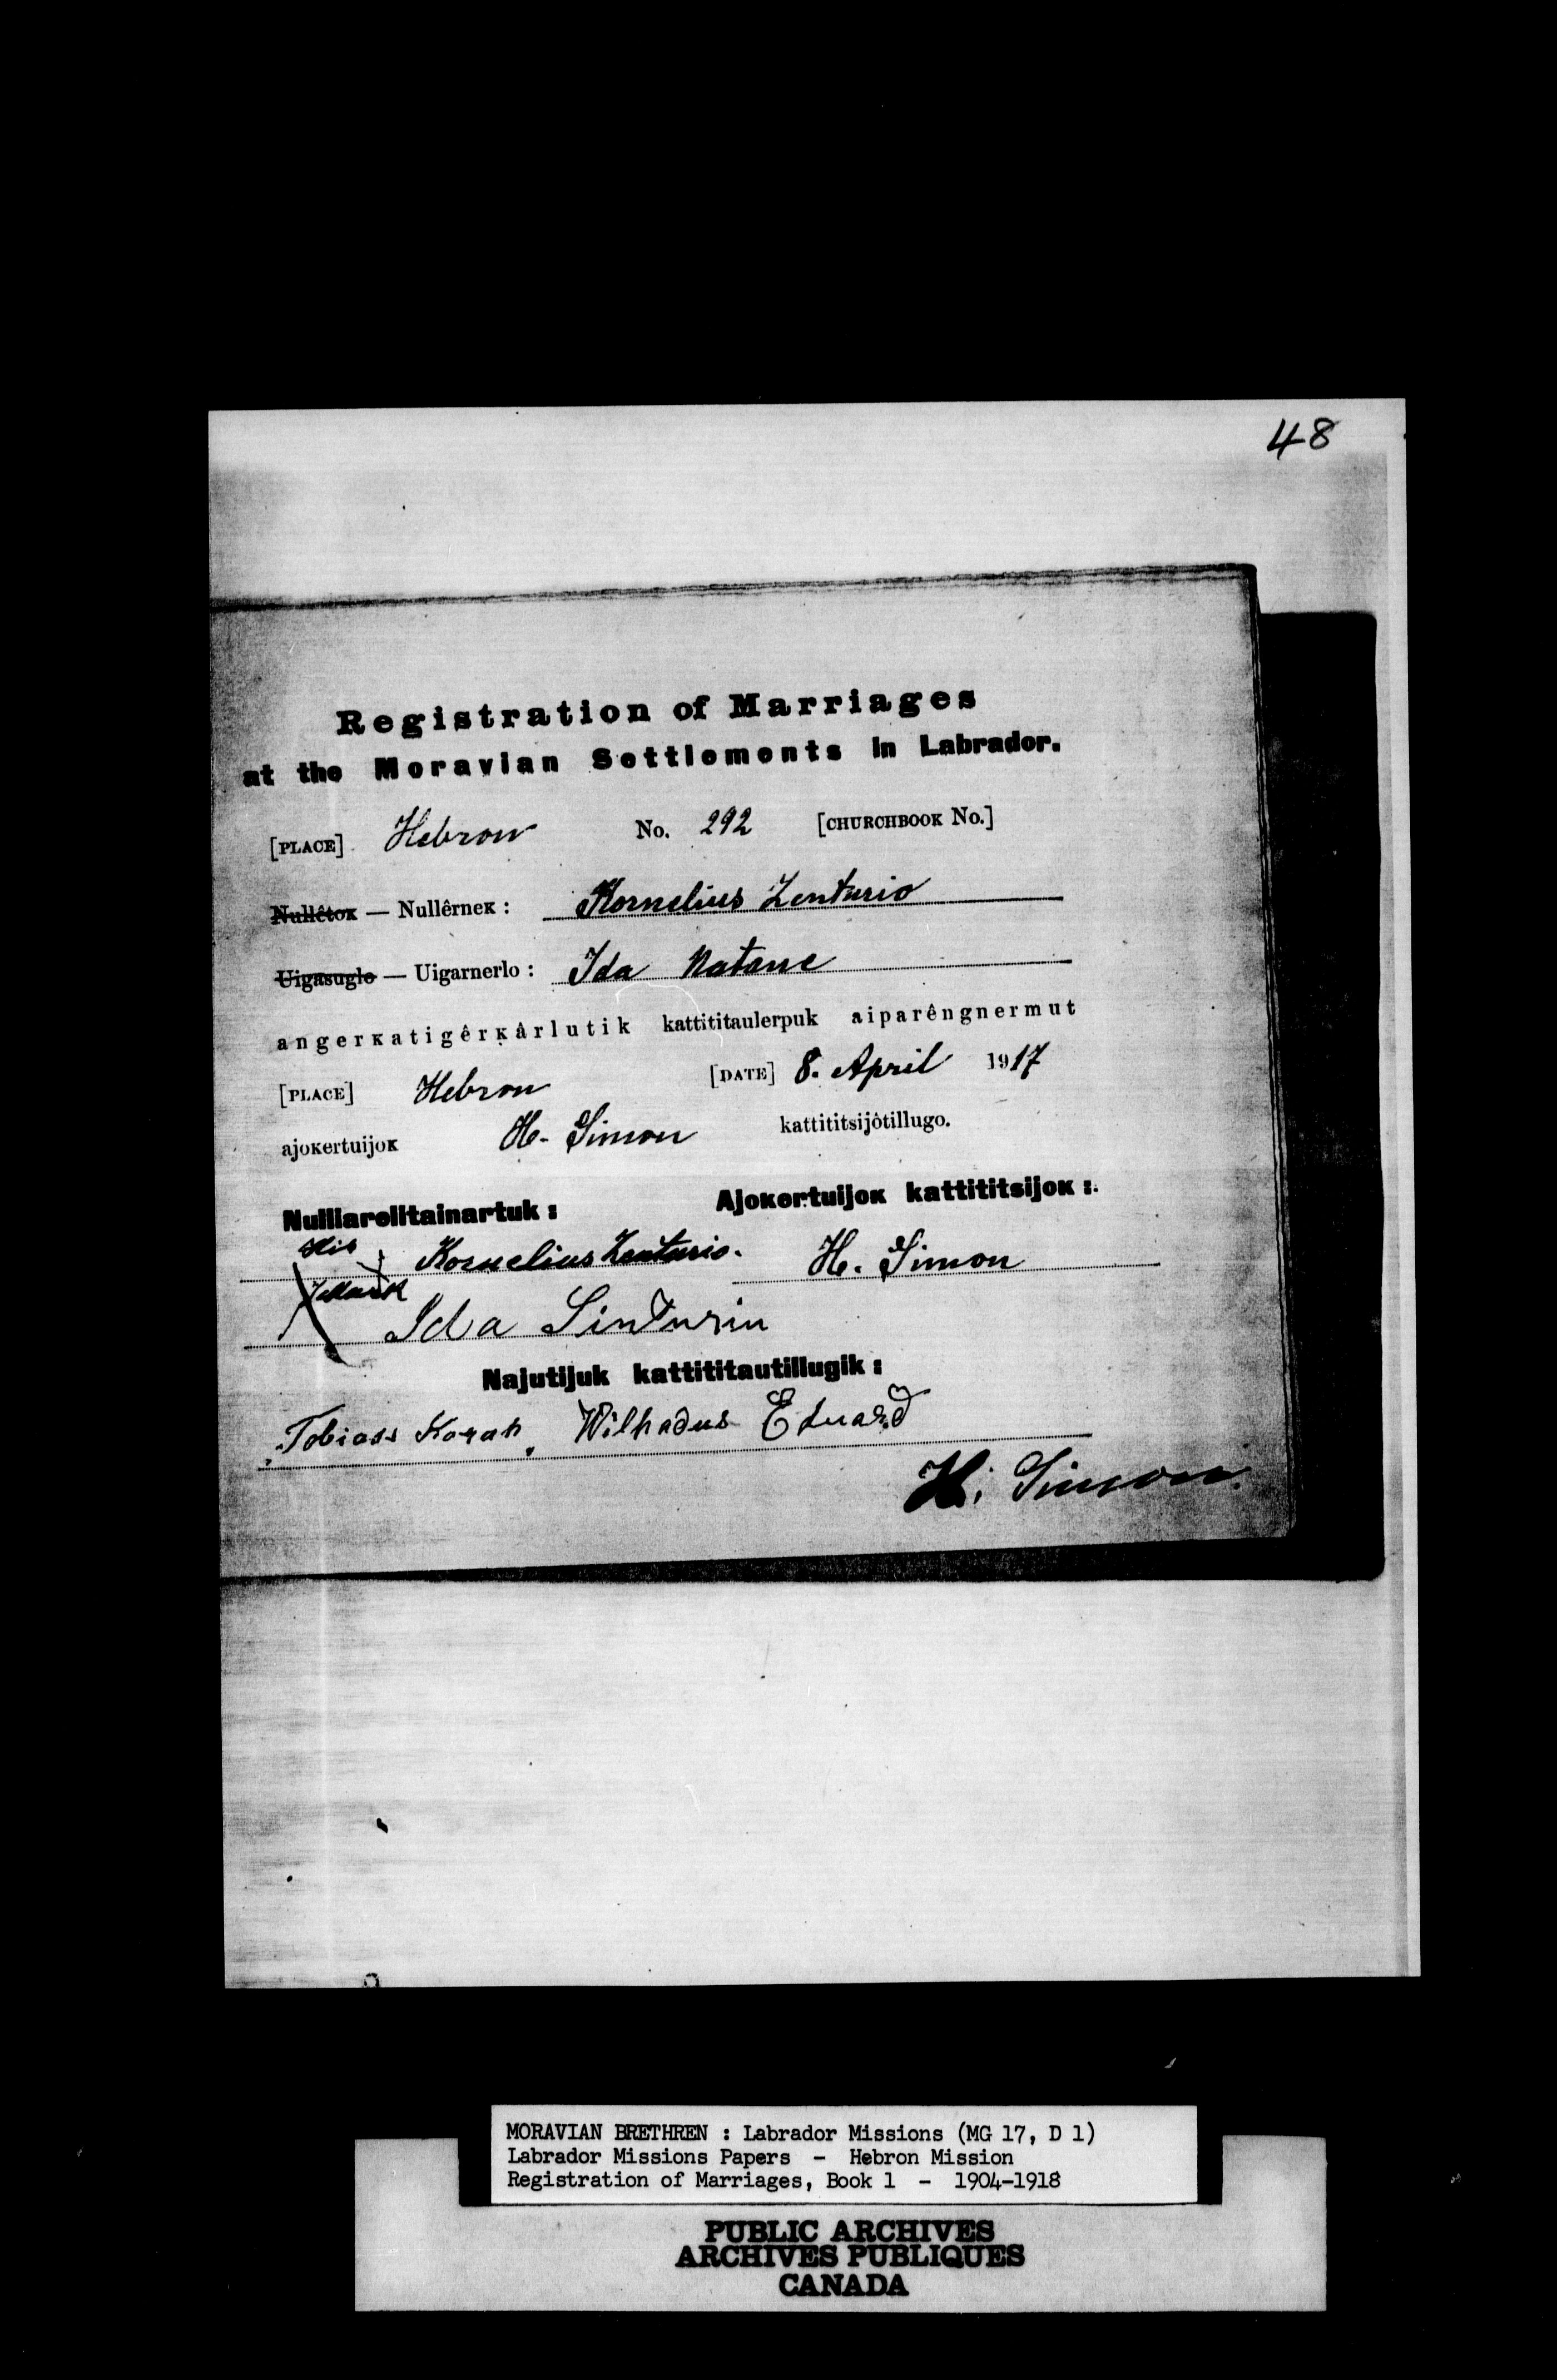 48
Registration of Marriages
at the Moravian Settlements in Labrador.
[PLACE] Hebron No. 292 [CHURCHBOOK No.]
Nullêtoĸ — Nullêrneĸ : Kornelius Zenturio
Uigasuglo — Uigarnerlo : Ida Natane
angerĸatigêrĸârlutik kattititaulerpuk aiparêngnermut
[PLACE] Hebron [DATE] 8. April 1917
ajoĸertuijoĸ H. Simon kattititsijôtillugo.
Nulliarelitainartuk : Ajoĸertuijoĸ kattititsijoĸ :
His Kornelius Zenturio. H. Simon
X Mark
Ida Sinturin
Najutijuk kattititautillugik :
Tobias Korah, Wilhadus Eduard
H. Simon.
MORAVIAN BRETHREN : Labrador Missions (MG 17, D 1)
Labrador Missions Papers - Hebron Mission
Registration of Marriages, Book 1 - 1904-1918
PUBLIC ARCHIVES
ARCHIVES PUBLIQUES
CANADA